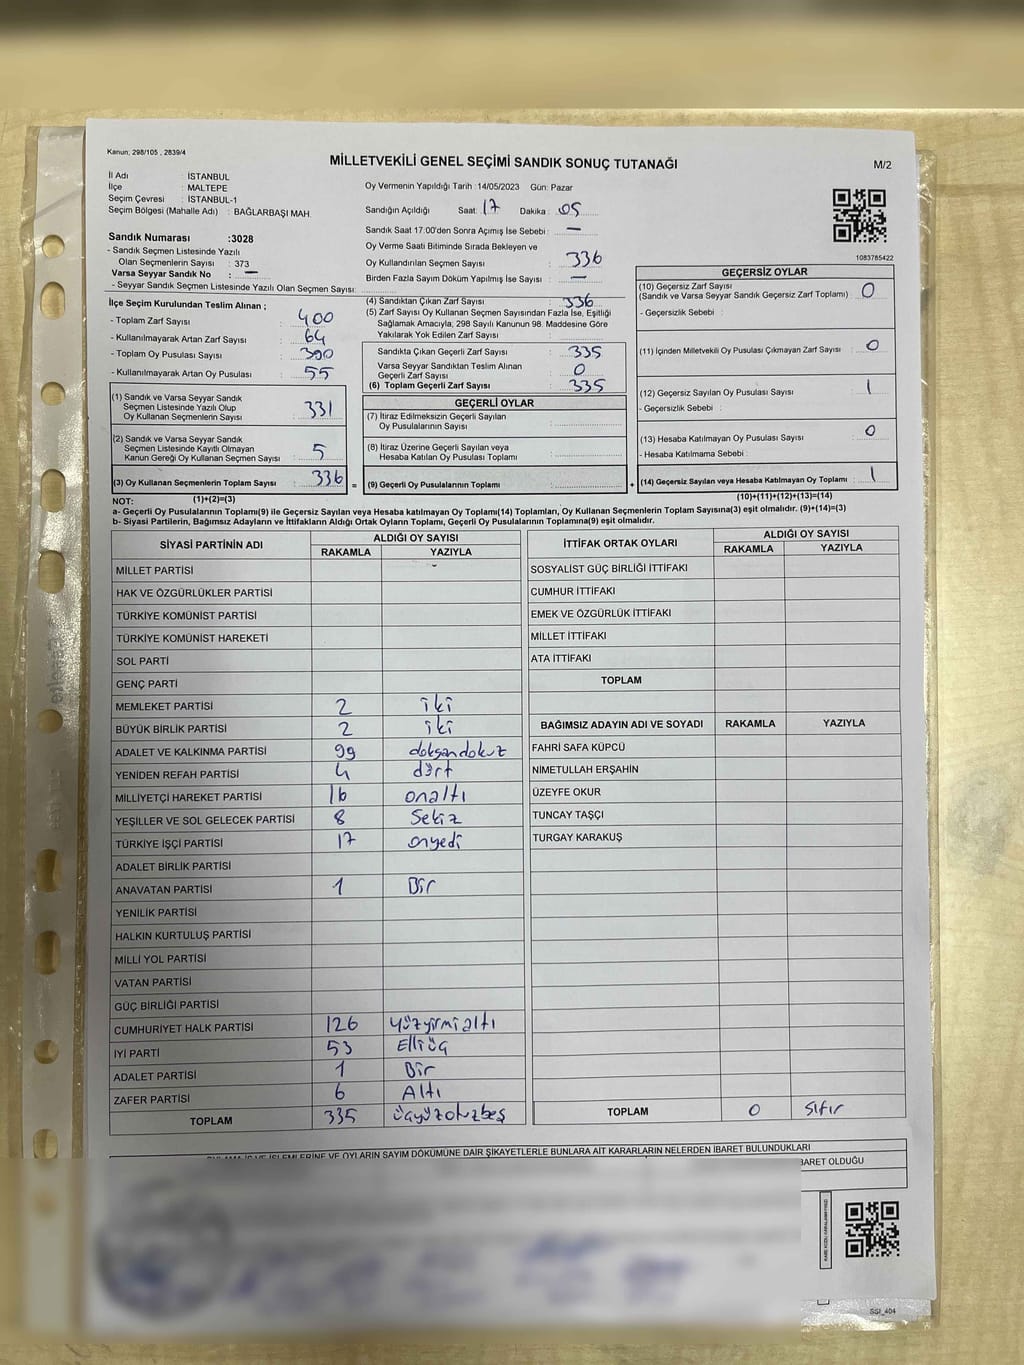 Kanun; 298/105 , 2839/4
MİLLETVEKİLİ GENEL SEÇİMİ SANDIK SONUÇ TUTANAĞI
M/2
İl Adı : İSTANBUL
İlçe : MALTEPE
Seçim Çevresi : İSTANBUL-1
Seçim Bölgesi (Mahalle Adı) : BAĞLARBAŞI MAH.
Oy Vermenin Yapıldığı Tarih : 14/05/2023 Gün: Pazar
Sandığın Açıldığı Saat: 17 Dakika : 05
Sandık Saat 17.00'den Sonra Açımış İse Sebebi : —
Oy Verme Saati Bitiminde Sırada Bekleyen ve
Oy Kullandırılan Seçmen Sayısı : 336
Birden Fazla Sayım Döküm Yapılmış İse Sayısı : —
1083785422
Sandık Numarası :3028
- Sandık Seçmen Listesinde Yazılı
Olan Seçmenlerin Sayısı : 373
Varsa Seyyar Sandık No : —
- Seyyar Sandık Seçmen Listesinde Yazılı Olan Seçmen Sayısı:
İlçe Seçim Kurulundan Teslim Alınan ;
- Toplam Zarf Sayısı : 400
- Kullanılmayarak Artan Zarf Sayısı : 64
- Toplam Oy Pusulası Sayısı : 390
- Kullanılmayarak Artan Oy Pusulası : 55
(1) Sandık ve Varsa Seyyar Sandık
Seçmen Listesinde Yazılı Olup
Oy Kullanan Seçmenlerin Sayısı : 331
(2) Sandık ve Varsa Seyyar Sandık
Seçmen Listesinde Kayıtlı Olmayan
Kanun Gereği Oy Kullanan Seçmen Sayısı : 5
(3) Oy Kullanan Seçmenlerin Toplam Sayısı : 336 =
(4) Sandıktan Çıkan Zarf Sayısı : 336
(5) Zarf Sayısı Oy Kullanan Seçmen Sayısından Fazla İse, Eşitliği
Sağlamak Amacıyla, 298 Sayılı Kanunun 98. Maddesine Göre
Yakılarak Yok Edilen Zarf Sayısı :
Sandıkta Çıkan Geçerli Zarf Sayısı : 335
Varsa Seyyar Sandıktan Teslim Alınan
Geçerli Zarf Sayısı : 0
(6) Toplam Geçerli Zarf Sayısı : 335
GEÇERLİ OYLAR
(7) İtiraz Edilmeksizin Geçerli Sayılan
Oy Pusulalarının Sayısı :
(8) İtiraz Üzerine Geçerli Sayılan veya
Hesaba Katılan Oy Pusulası Toplamı :
(9) Geçerli Oy Pusulalarının Toplamı : +
GEÇERSİZ OYLAR
(10) Geçersiz Zarf Sayısı
(Sandık ve Varsa Seyyar Sandık Geçersiz Zarf Toplamı) : 0
- Geçersizlik Sebebi :
(11) İçinden Milletvekili Oy Pusulası Çıkmayan Zarf Sayısı : 0
(12) Geçersiz Sayılan Oy Pusulası Sayısı : 1
- Geçersizlik Sebebi :
(13) Hesaba Katılmayan Oy Pusulası Sayısı : 0
- Hesaba Katılmama Sebebi :
(14) Geçersiz Sayılan veya Hesaba Katılmayan Oy Toplamı : 1
NOT: (1)+(2)=(3) (10)+(11)+(12)+(13)=(14)
a- Geçerli Oy Pusulalarının Toplamı(9) ile Geçersiz Sayılan veya Hesaba katılmayan Oy Toplamı(14) Toplamları, Oy Kullanan Seçmenlerin Toplam Sayısına(3) eşit olmalıdır. (9)+(14)=(3)
b- Siyasi Partilerin, Bağımsız Adayların ve İttifakların Aldığı Ortak Oyların Toplamı, Geçerli Oy Pusulalarının Toplamına(9) eşit olmalıdır.
SİYASİ PARTİNİN ADI ALDIĞI OY SAYISI
RAKAMLA YAZIYLA
MİLLET PARTİSİ
HAK VE ÖZGÜRLÜKLER PARTİSİ
TÜRKİYE KOMÜNİST PARTİSİ
TÜRKİYE KOMÜNİST HAREKETİ
SOL PARTİ
GENÇ PARTİ
MEMLEKET PARTİSİ 2 iki
BÜYÜK BİRLİK PARTİSİ 2 iki
ADALET VE KALKINMA PARTİSİ 99 doksandokuz
YENİDEN REFAH PARTİSİ 4 dört
MİLLİYETÇİ HAREKET PARTİSİ 16 onaltı
YEŞİLLER VE SOL GELECEK PARTİSİ 8 Sekiz
TÜRKİYE İŞÇİ PARTİSİ 17 onyedi
ADALET BİRLİK PARTİSİ
ANAVATAN PARTİSİ 1 Bir
YENİLİK PARTİSİ
HALKIN KURTULUŞ PARTİSİ
MİLLİ YOL PARTİSİ
VATAN PARTİSİ
GÜÇ BİRLİĞİ PARTİSİ
CUMHURİYET HALK PARTİSİ 126 yüzyirmialtı
İYİ PARTİ 53 Elliüç
ADALET PARTİSİ 1 Bir
ZAFER PARTİSİ 6 Altı
TOPLAM 335 üçyüzotuzbeş
İTTİFAK ORTAK OYLARI ALDIĞI OY SAYISI
RAKAMLA YAZIYLA
SOSYALİST GÜÇ BİRLİĞİ İTTİFAKI
CUMHUR İTTİFAKI
EMEK VE ÖZGÜRLÜK İTTİFAKI
MİLLET İTTİFAKI
ATA İTTİFAKI
TOPLAM
BAĞIMSIZ ADAYIN ADI VE SOYADI RAKAMLA YAZIYLA
FAHRİ SAFA KÜPCÜ
NİMETULLAH ERŞAHİN
ÜZEYFE OKUR
TUNCAY TAŞÇI
TURGAY KARAKUŞ
TOPLAM 0 Sıfır
İŞLEMLERİNE VE OYLARIN SAYIM DÖKÜMÜNE DAİR ŞİKAYETLERLE BUNLARA AİT KARARLARIN NELERDEN İBARET BULUNDUKLARI
BARET OLDUĞU
SSİ_404